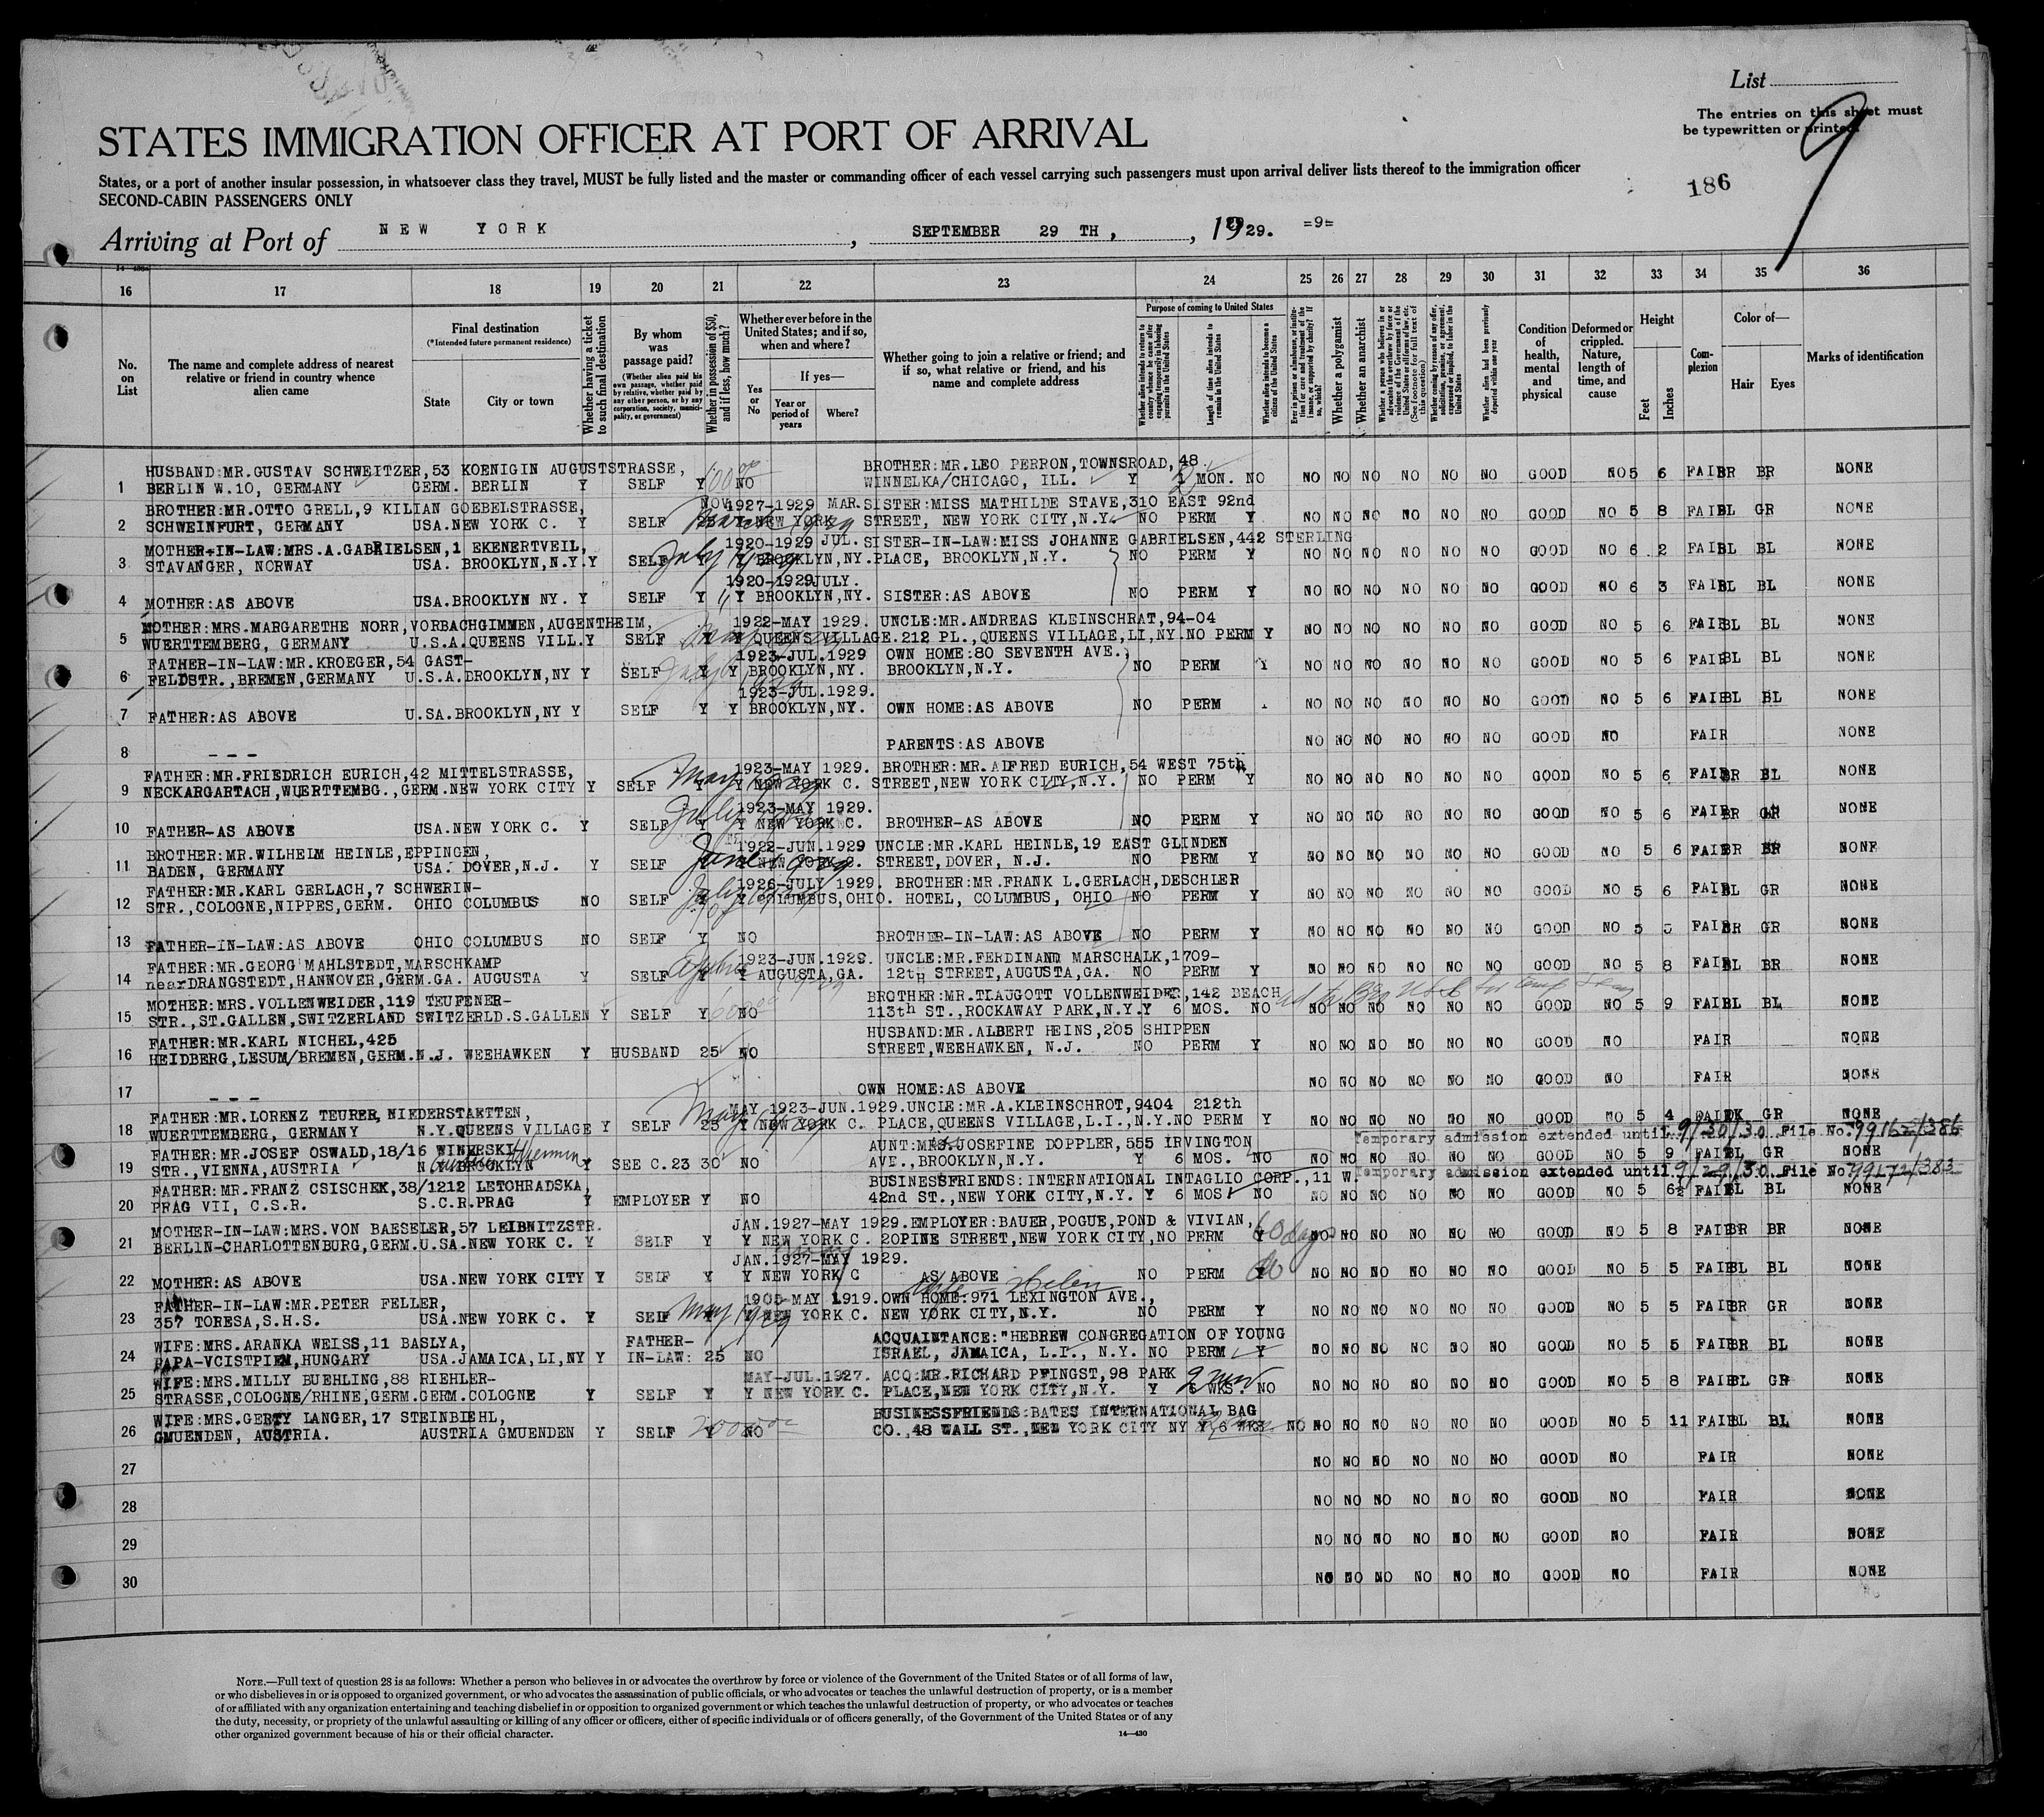 List
The entries on this sheet must
be typewritten or printed.
9
186
STATES IMMIGRATION OFFICER AT PORT OF ARRIVAL
States, or a port of another insular possession, in whatsoever class they travel, MUST be fully listed and the master or commanding officer of each vessel carrying such passengers must upon arrival deliver lists thereof to the immigration officer
SECOND-CABIN PASSENGERS ONLY
Arriving at Port of NEW YORK, SEPTEMBER 29 TH, 1929. =9=
16 17 18 19 20 21 22 23 24 25 26 27 28 29 30 31 32 33 34 35 36
No. on List
The name and complete address of nearest relative or friend in country whence alien came
Final destination (*Intended future permanent residence)
State City or town
Whether having a ticket to such final destination
By whom was passage paid?
(Whether alien paid his own passage, whether paid by relative, whether paid by any other person, or by any corporation, society, municipality, or government)
Whether in possession of $50, and if less, how much?
Whether ever before in the United States; and if so, when and where?
Yes or No
If yes—
Year or period of years Where?
Whether going to join a relative or friend; and if so, what relative or friend, and his name and complete address
Purpose of coming to United States
Whether alien intends to return to country whence he came after engaging temporarily in laboring pursuits in the United States
Length of time alien intends to remain in the United States
Whether alien intends to become a citizen of the United States
Whether a polygamist
Whether an anarchist
Condition of health, mental and physical
Deformed or crippled. Nature, length of time, and cause
Height
Feet Inches
Complexion
Color of—
Hair Eyes
Marks of identification
HUSBAND:MR.GUSTAV SCHWEITZER,53 KOENIGIN AUGUSTSTRASSE, BROTHER:MR.LEO PERRON,TOWNSROAD,48
1 BERLIN W.10, GERMANY GERM. BERLIN Y SELF Y NO WINNELKA/CHICAGO, ILL. Y 1 MON. NO NO NO NO NO NO NO GOOD NO 5 6 FAIR BR BR NONE
BROTHER:MR.OTTO GRELL,9 KILIAN GOEBELSTRASSE, NOV 1927-1929 MAR. SISTER:MISS MATHILDE STAVE,310 EAST 92nd
2 SCHWEINFURT, GERMANY USA.NEW YORK C. Y SELF Y NEW YORK STREET, NEW YORK CITY,N.Y. NO PERM Y NO NO NO NO NO NO GOOD NO 5 8 FAIR BL GR NONE
MOTHER-IN-LAW:MRS.A.GABRIELSEN,1 EKENERTVEIL, 1920-1929 JUL. SISTER-IN-LAW:MISS JOHANNE GABRIELSEN,442 STERLING
3 STAVANGER, NORWAY USA. BROOKLYN,N.Y. Y SELF Y Y BROOKLYN,NY. PLACE, BROOKLYN,N.Y. NO PERM Y NO NO NO NO NO NO GOOD NO 6 2 FAIR BL BL NONE
1920-1929 JULY.
4 MOTHER:AS ABOVE USA.BROOKLYN NY. Y SELF Y Y BROOKLYN,NY. SISTER:AS ABOVE NO PERM Y NO NO NO NO NO NO GOOD NO 6 3 FAIR BL BL NONE
MOTHER:MRS.MARGARETHE NORR,VORBACHGIMMEN,AUGENTHEIM, 1922-MAY 1929. UNCLE:MR.ANDREAS KLEINSCHRAT,94-04
5 WUERTTEMBERG, GERMANY U.S.A.QUEENS VILL. Y SELF Y Y QUEENS VILLAGE. 212 PL.,QUEENS VILLAGE,LI,NY. NO PERM Y NO NO NO NO NO NO GOOD NO 5 6 FAIR BL BL NONE
FATHER-IN-LAW:MR.KROEGER,54 GAST- 1923-JUL.1929 OWN HOME:80 SEVENTH AVE.,
6 FELDSTR.,BREMEN,GERMANY U.S.A.BROOKLYN,NY Y SELF Y Y BROOKLYN,NY. BROOKLYN,N.Y. NO PERM Y NO NO NO NO NO NO GOOD NO 5 6 FAIR BL BL NONE
1923-JUL.1929.
7 FATHER:AS ABOVE U.SA.BROOKLYN,NY Y SELF Y Y BROOKLYN,NY. OWN HOME:AS ABOVE NO PERM NO NO NO NO NO NO GOOD NO 5 6 FAIR BL BL NONE
8 - - - PARENTS:AS ABOVE NO NO NO NO NO NO GOOD NO FAIR NONE
FATHER:MR.FRIEDRICH EURICH,42 MITTELSTRASSE, 1923-MAY 1929. BROTHER:MR.ALFRED EURICH,54 WEST 75th
9 NECKARGARTACH,WUERTTEMBG.,GERM.NEW YORK CITY Y SELF Y Y NEW YORK C. STREET,NEW YORK CITY,N.Y. NO PERM Y NO NO NO NO NO NO GOOD NO 5 6 FAIR BR BL NONE
1923-MAY 1929.
10 FATHER-AS ABOVE USA.NEW YORK C. Y SELF Y Y NEW YORK C. BROTHER-AS ABOVE NO PERM Y NO NO NO NO NO NO GOOD NO 5 6 FAIR BR NONE
BROTHER:MR.WILHEIM HEINLE,EPPINGEN, 1922-JUN.1929 UNCLE:MR.KARL HEINLE,19 EAST GLINDEN
11 BADEN, GERMANY USA. DOVER,N.J. Y SELF June 1929 STREET,DOVER, N.J. NO PERM Y NO NO NO NO NO NO GOOD NO 5 6 FAIR BR BR NONE
FATHER:MR.KARL GERLACH,7 SCHWERIN- 1926-JULY 1929. BROTHER:MR.FRANK L.GERLACH,DESCHLER
12 STR.,COLOGNE,NIPPES,GERM. OHIO COLUMBUS NO SELF Y Y COLUMBUS,OHIO. HOTEL, COLUMBUS, OHIO NO PERM Y NO NO NO NO NO NO GOOD NO 5 6 FAIR BL GR NONE
13 FATHER-IN-LAW:AS ABOVE OHIO COLUMBUS NO SELF Y NO BROTHER-IN-LAW:AS ABOVE NO PERM Y NO NO NO NO NO NO GOOD NO 5 FAIR BR GR NONE
FATHER:MR.GEORG MAHLSTEDT,MARSCHKAMP 1923-JUN.1929. UNCLE:MR.FERDINAND MARSCHALK,1709-
14 near DRANGSTEDT,HANNOVER,GERM.GA. AUGUSTA Y SELF Y AUGUSTA,GA. 12th STREET,AUGUSTA,GA. NO PERM Y NO NO NO NO NO NO GOOD NO 5 8 FAIR BL BR NONE
MOTHER:MRS.VOLLENWEIDER,119 TEUFENER- BROTHER:MR.TLAUGOTT VOLLENWEIDER,142 BEACH
15 STR.,ST.GALLEN,SWITZERLAND SWITZERLD.S.GALLEN Y SELF Y NO 113th ST.,ROCKAWAY PARK,N.Y. Y 6 MOS. NO NO NO NO NO NO NO GOOD NO 5 9 FAIR BL BL NONE
FATHER:MR.KARL NICHEL,425 HUSBAND:MR.ALBERT HEINS,205 SHIPPEN
16 HEIDBERG,LESUM/BREMEN,GERM.N.J. WEEHAWKEN Y HUSBAND 25 NO STREET,WEEHAWKEN, N.J. NO PERM Y NO NO NO NO NO NO GOOD NO FAIR NONE
17 - - - OWN HOME:AS ABOVE NO NO NO NO NO NO GOOD NO FAIR NONE
FATHER:MR.LORENZ TEURER, NIEDERSTAETTEN, MAY 1923-JUN.1929. UNCLE:MR.A.KLEINSCHROT,9404 212th
18 WUERTTEMBERG, GERMANY N.Y.QUEENS VILLAGE Y SELF 25 Y NEW YORK C. PLACE,QUEENS VILLAGE,L.I.,N.Y. NO PERM Y NO NO NO NO NO NO GOOD NO 5 4 FAIR DK GR NONE
Temporary admission extended until 9/30/30 File No. 99162/386
FATHER:MR.JOSEF OSWALD,18/16 WINERSKI AUNT:MRS.JOSEFINE DOPPLER,555 IRVINGTON
19 STR.,VIENNA,AUSTRIA N.Y.BROOKLYN Y SEE C.23 30 NO AVE.,BROOKLYN,N.Y. Y 6 MOS. NO NO NO NO NO NO NO GOOD NO 5 9 FAIR BL GR NONE
Temporary admission extended until 9/29/30 File No. 99172/383
FATHER:MR.FRANZ CSISCHEK,38/1212 LETOHRADSKA, BUSINESSFRIENDS:INTERNATIONAL INTAGLIO CORP.,11 W.
20 PRAG VII, C.S.R. S.C.R.PRAG Y EMPLOYER Y NO 42nd ST.,NEW YORK CITY,N.Y. Y 6 MOS. NO NO NO NO NO NO NO GOOD NO 5 6½ FAIR BL BL NONE
MOTHER-IN-LAW:MRS.VON BAESELER,57 LEIBNITZSTR. JAN.1927-MAY 1929.EMPLOYER:BAUER,POGUE,POND & VIVIAN, 60 days
21 BERLIN-CHARLOTTENBURG,GERM.U.SA.NEW YORK C. Y SELF Y Y NEW YORK C. 20PINE STREET,NEW YORK CITY, NO PERM Y NO NO NO NO NO NO GOOD NO 5 8 FAIR BR BR NONE
JAN.1927-MAY 1929.
22 MOTHER:AS ABOVE USA.NEW YORK CITY Y SELF Y Y NEW YORK C AS ABOVE NO PERM do NO NO NO NO NO NO GOOD NO 5 5 FAIR BL BL NONE
wife Helen
FATHER-IN-LAW:MR.PETER FELLER, 1905-MAY 1919.OWN HOME:971 LEXINGTON AVE.,
23 357 TORESA,S.H.S. USA.NEW YORK C. Y SELF May 1929 Y NEW YORK C. NEW YORK CITY,N.Y. NO PERM Y NO NO NO NO NO NO GOOD NO 5 5 FAIR BR GR NONE
WIFE:MRS.ARANKA WEISS,11 BASLYA, FATHER- ACQUAINTANCE:"HEBREW CONGREGATION OF YOUNG
24 PAPA-VCISTPIEM,HUNGARY USA.JAMAICA,LI,NY Y IN-LAW: 25 NO ISRAEL, JAMAICA, L.I., N.Y. NO PERM Y NO NO NO NO NO NO GOOD NO 5 5 FAIR BR BL NONE
WIFE:MRS.MILLY BUEHLING,88 RIEHLER- MAY-JUL.1927. ACQ:MR.RICHARD PFINGST,98 PARK
25 STRASSE,COLOGNE/RHINE,GERM.GERM.COLOGNE Y SELF Y Y NEW YORK C. PLACE,NEW YORK CITY,N.Y. Y 6 WKS. NO NO NO NO NO NO NO GOOD NO 5 8 FAIR BL GR NONE
WIFE:MRS.GERTY LANGER,17 STEINBIEHL, BUSINESSFRIENDS:BATES INTERNATIONAL BAG
26 GMUENDEN, AUSTRIA. AUSTRIA GMUENDEN Y SELF Y NO CO.,48 WALL ST.,NEW YORK CITY NY Y 6 WKS NO NO NO NO NO NO NO GOOD NO 5 11 FAIR BL BL NONE
27 NO NO NO NO NO NO GOOD NO FAIR NONE
28 NO NO NO NO NO NO GOOD NO FAIR NONE
29 NO NO NO NO NO NO GOOD NO FAIR NONE
30 NO NO NO NO NO NO GOOD NO FAIR NONE
NOTE.—Full text of question 28 is as follows: Whether a person who believes in or advocates the overthrow by force or violence of the Government of the United States or of all forms of law,
or who disbelieves in or is opposed to organized government, or who advocates the assassination of public officials, or who advocates or teaches the unlawful destruction of property, or is a member
of or affiliated with any organization entertaining and teaching disbelief in or opposition to organized government or which teaches the unlawful destruction of property, or who advocates or teaches
the duty, necessity, or propriety of the unlawful assaulting or killing of any officer or officers, either of specific individuals or of officers generally, of the Government of the United States or of any
other organized government because of his or their official character.
14—430